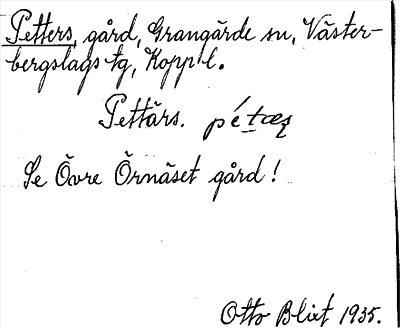 Petters, gård, Grangärde sn, Väster-
bergslags tg, Kopp l.
Pettärs. pé
Se Övre Örnäset gård!
Otto Blixt 1935.